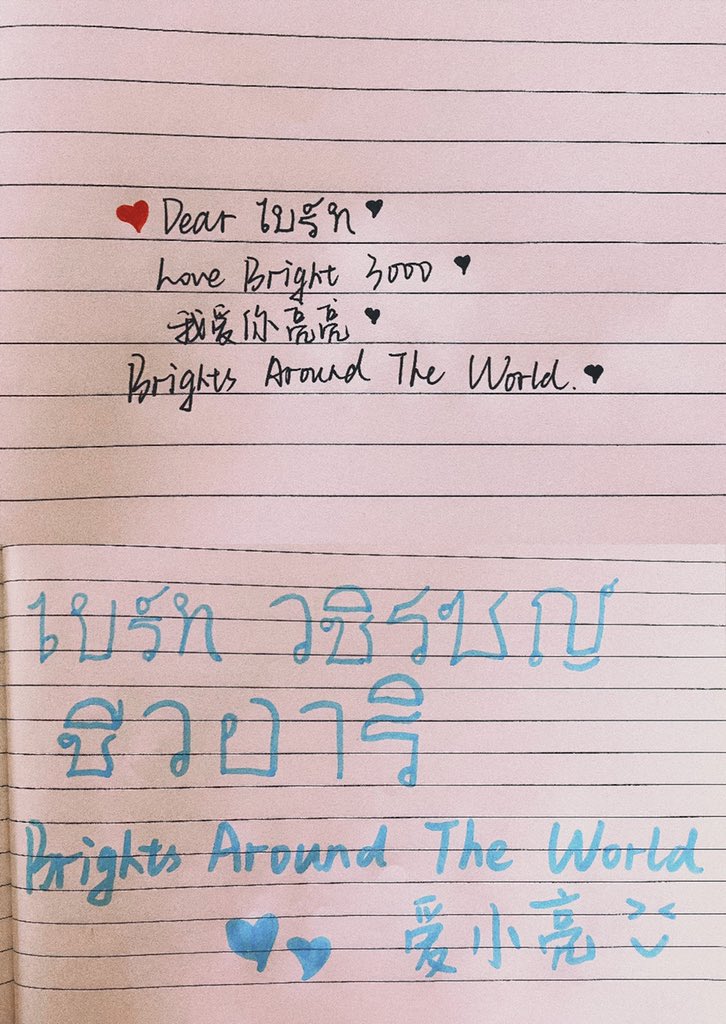 Dear ไบร์ท
Love Bright 3000
我爱你亮亮
Brights Around The World.
ไบร์ท วชิรชญ์
ชีวอาริ
Brights Around The World
爱小亮